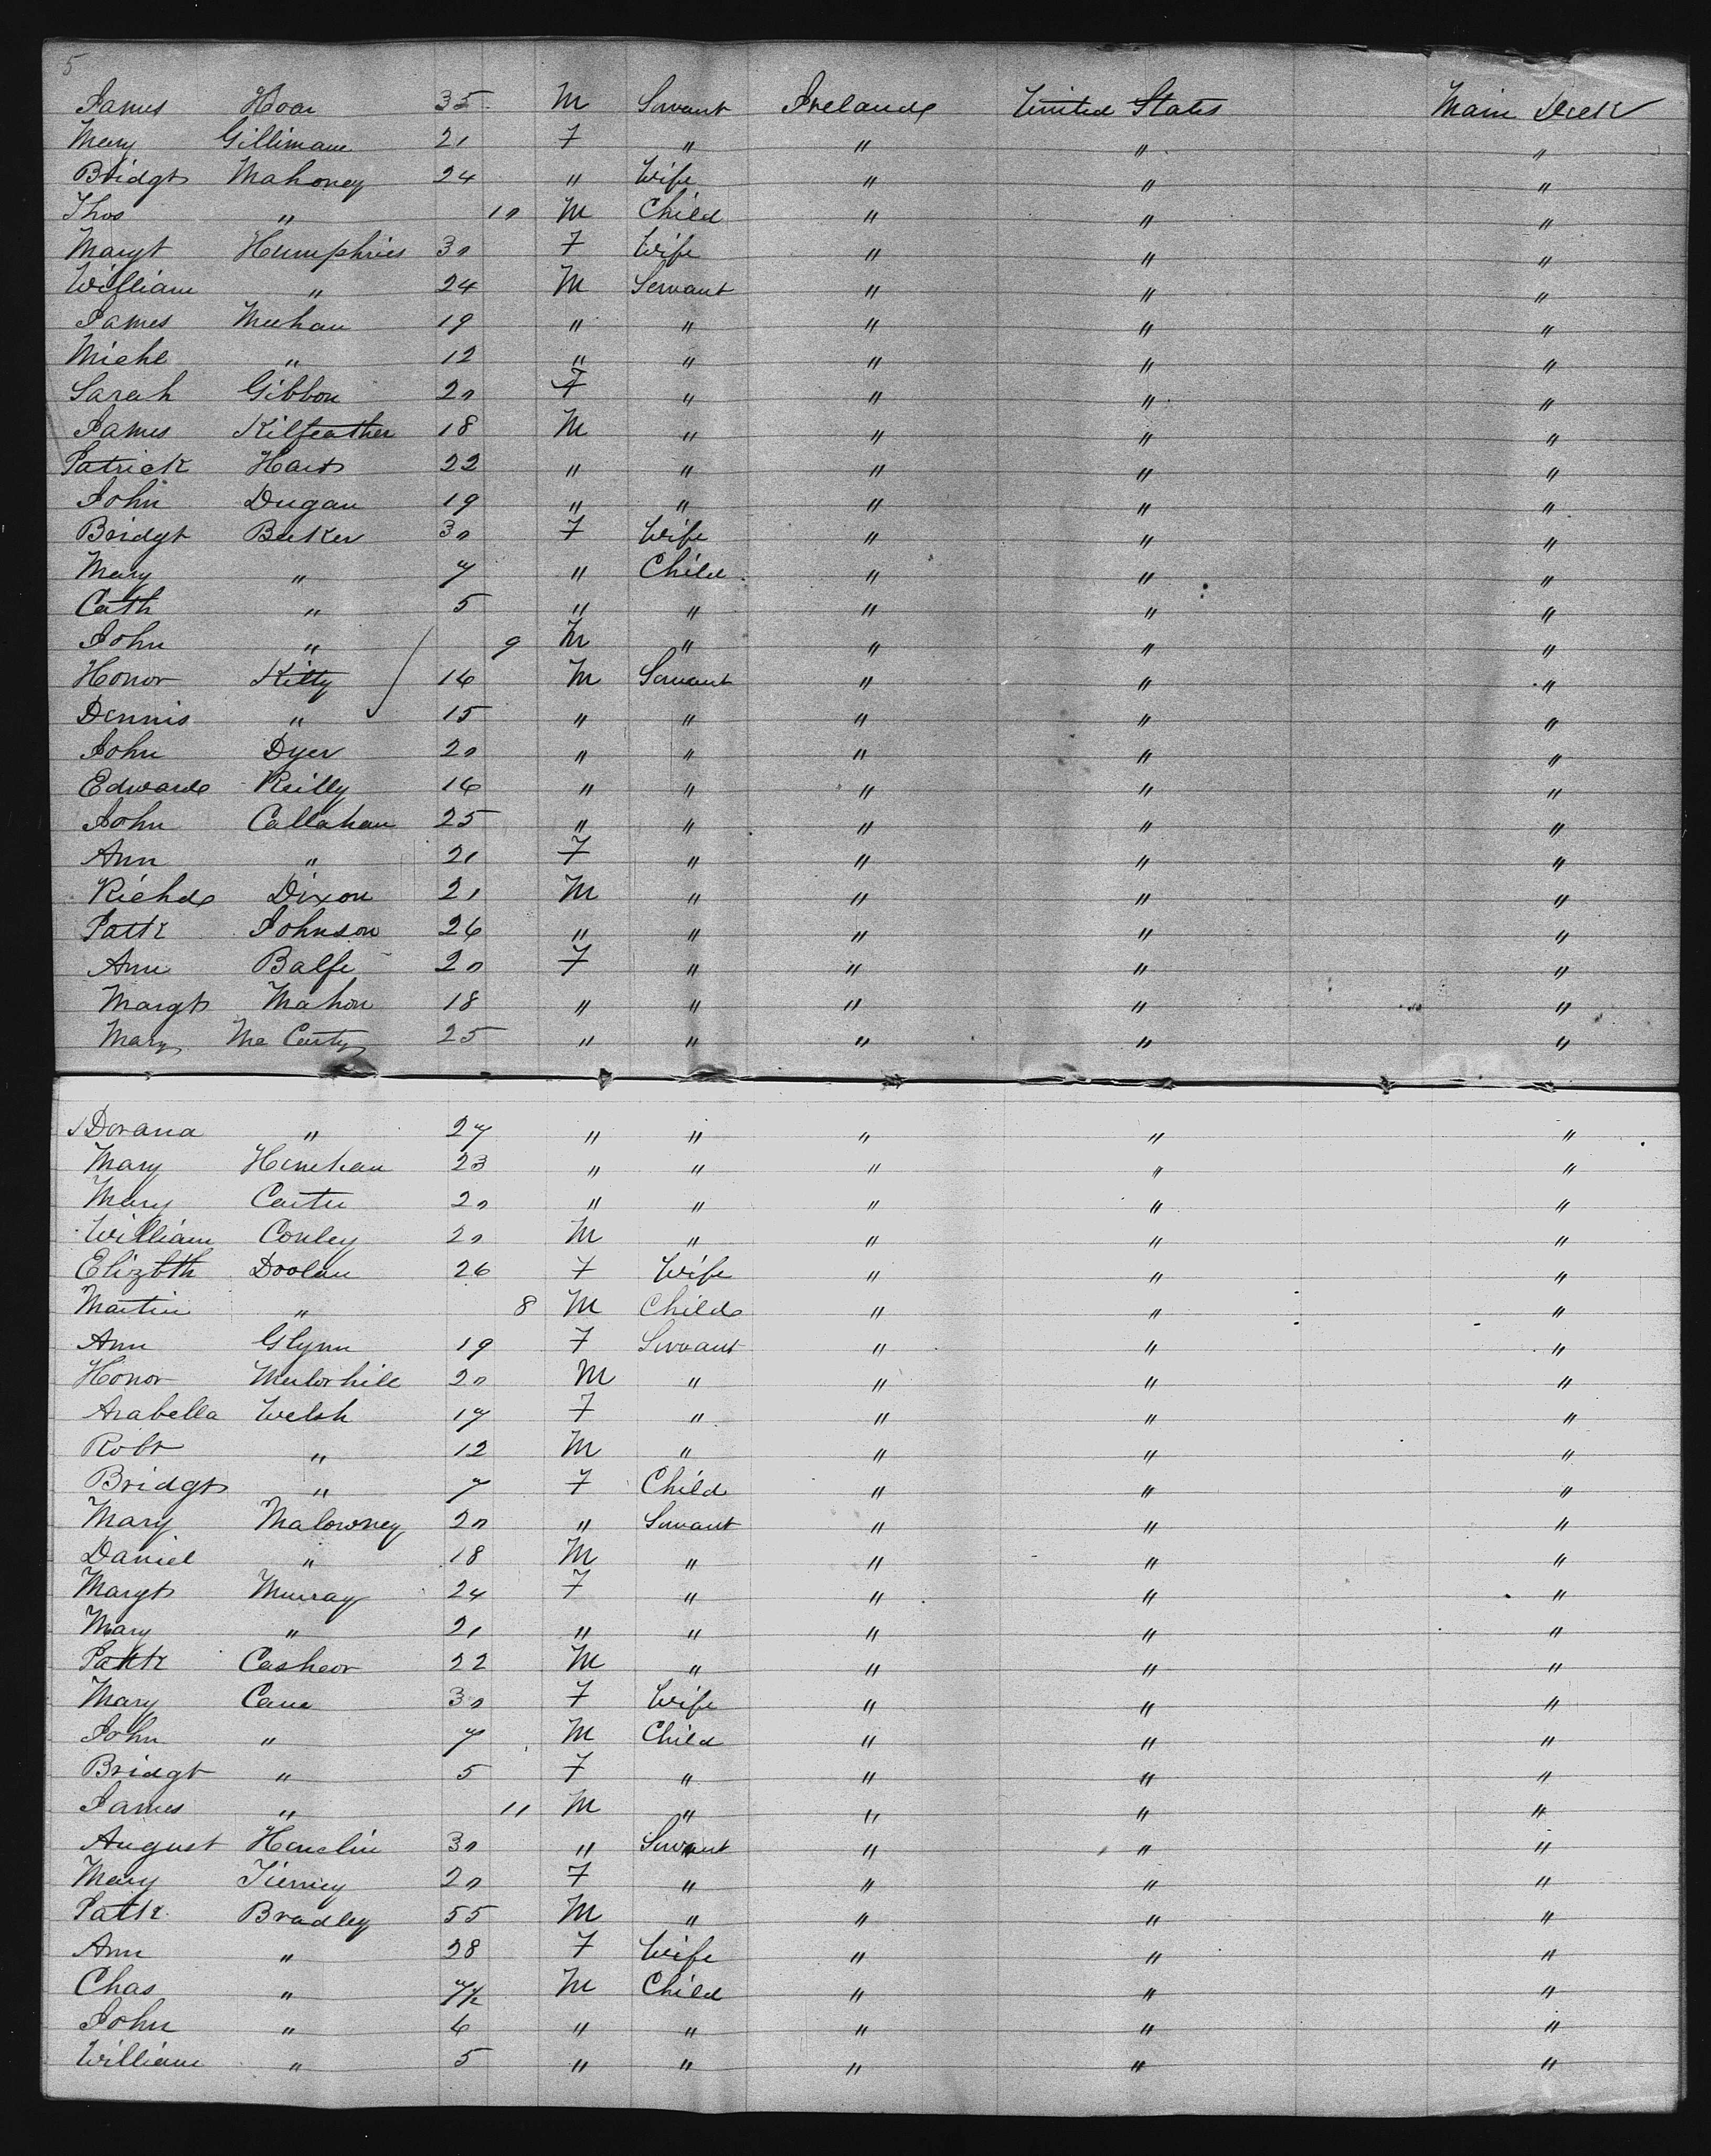 5
James Hoar 35 M Servant Ireland United States Main Deck
Mary Gillimane 21 F " " " "
Bridgt Mahoney 24 " Wife " " "
Thos " 10 M Child " " "
Margt Humphries 30 F Wife " " "
William " 24 M Servant " " "
James Meehan 19 " " " " "
Michl " 12 " " " " "
Sarah Gibbon 20 F " " " "
James Kilfeather 18 M " " " "
Patrick Hart 22 " " " " "
John Dugan 19 " " " " "
Bridgt Barker 30 F Wife " " "
Mary " 7 " Child " " "
Cath " 5 " " " " "
John " 9 M " " " "
Honor Kitty 16 M Servant " " "
Dennis " 15 " " " " "
John Dyer 20 " " " " "
Edward Reilly 16 " " " " "
John Callahan 25 " " " " "
Ann " 21 F " " " "
Richd Dixon 21 M " " " "
Patk Johnson 26 " " " " "
Ann Balfe 20 F " " " "
Margt Mahon 18 " " " " "
Mary Mc Carty 25 " " " " "
Dorana " 27 " " " " "
Mary Henehan 23 " " " " "
Mary Carter 20 " " " " "
William Conley 20 M " " " "
Elizbth Doolan 26 F Wife " " "
Martin " 8 M Child " " "
Ann Glynn 19 F Servant " " "
Honor Mulorhill 20 M " " " "
Arabella Welsh 17 F " " " "
Robt " 12 M " " " "
Bridgt " 7 F Child " " "
Mary Malowney 20 " Servant " " "
Daniel " 18 M " " " "
Margt Murray 24 F " " " "
Mary " 21 " " " " "
Patk Casheor 22 M " " " "
Mary Cane 30 F Wife " " "
John " 7 M Child " " "
Bridgt " 5 F " " " "
James " 11 M " " " "
August Henelin 30 " Servant " " "
Mary Tierney 20 F " " " "
Patk Bradley 55 M " " " "
Ann " 28 F Wife " " "
Chas " 7½ M Child " " "
John " 6 " " " " "
William " 5 " " " " "